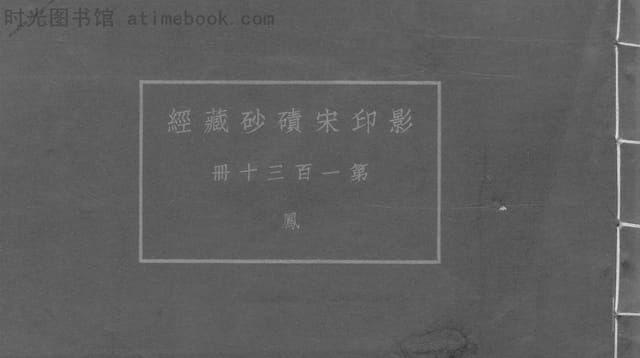 时光图书馆 atimebook.com
影印宋磧砂藏經
第一百三十冊
鳳